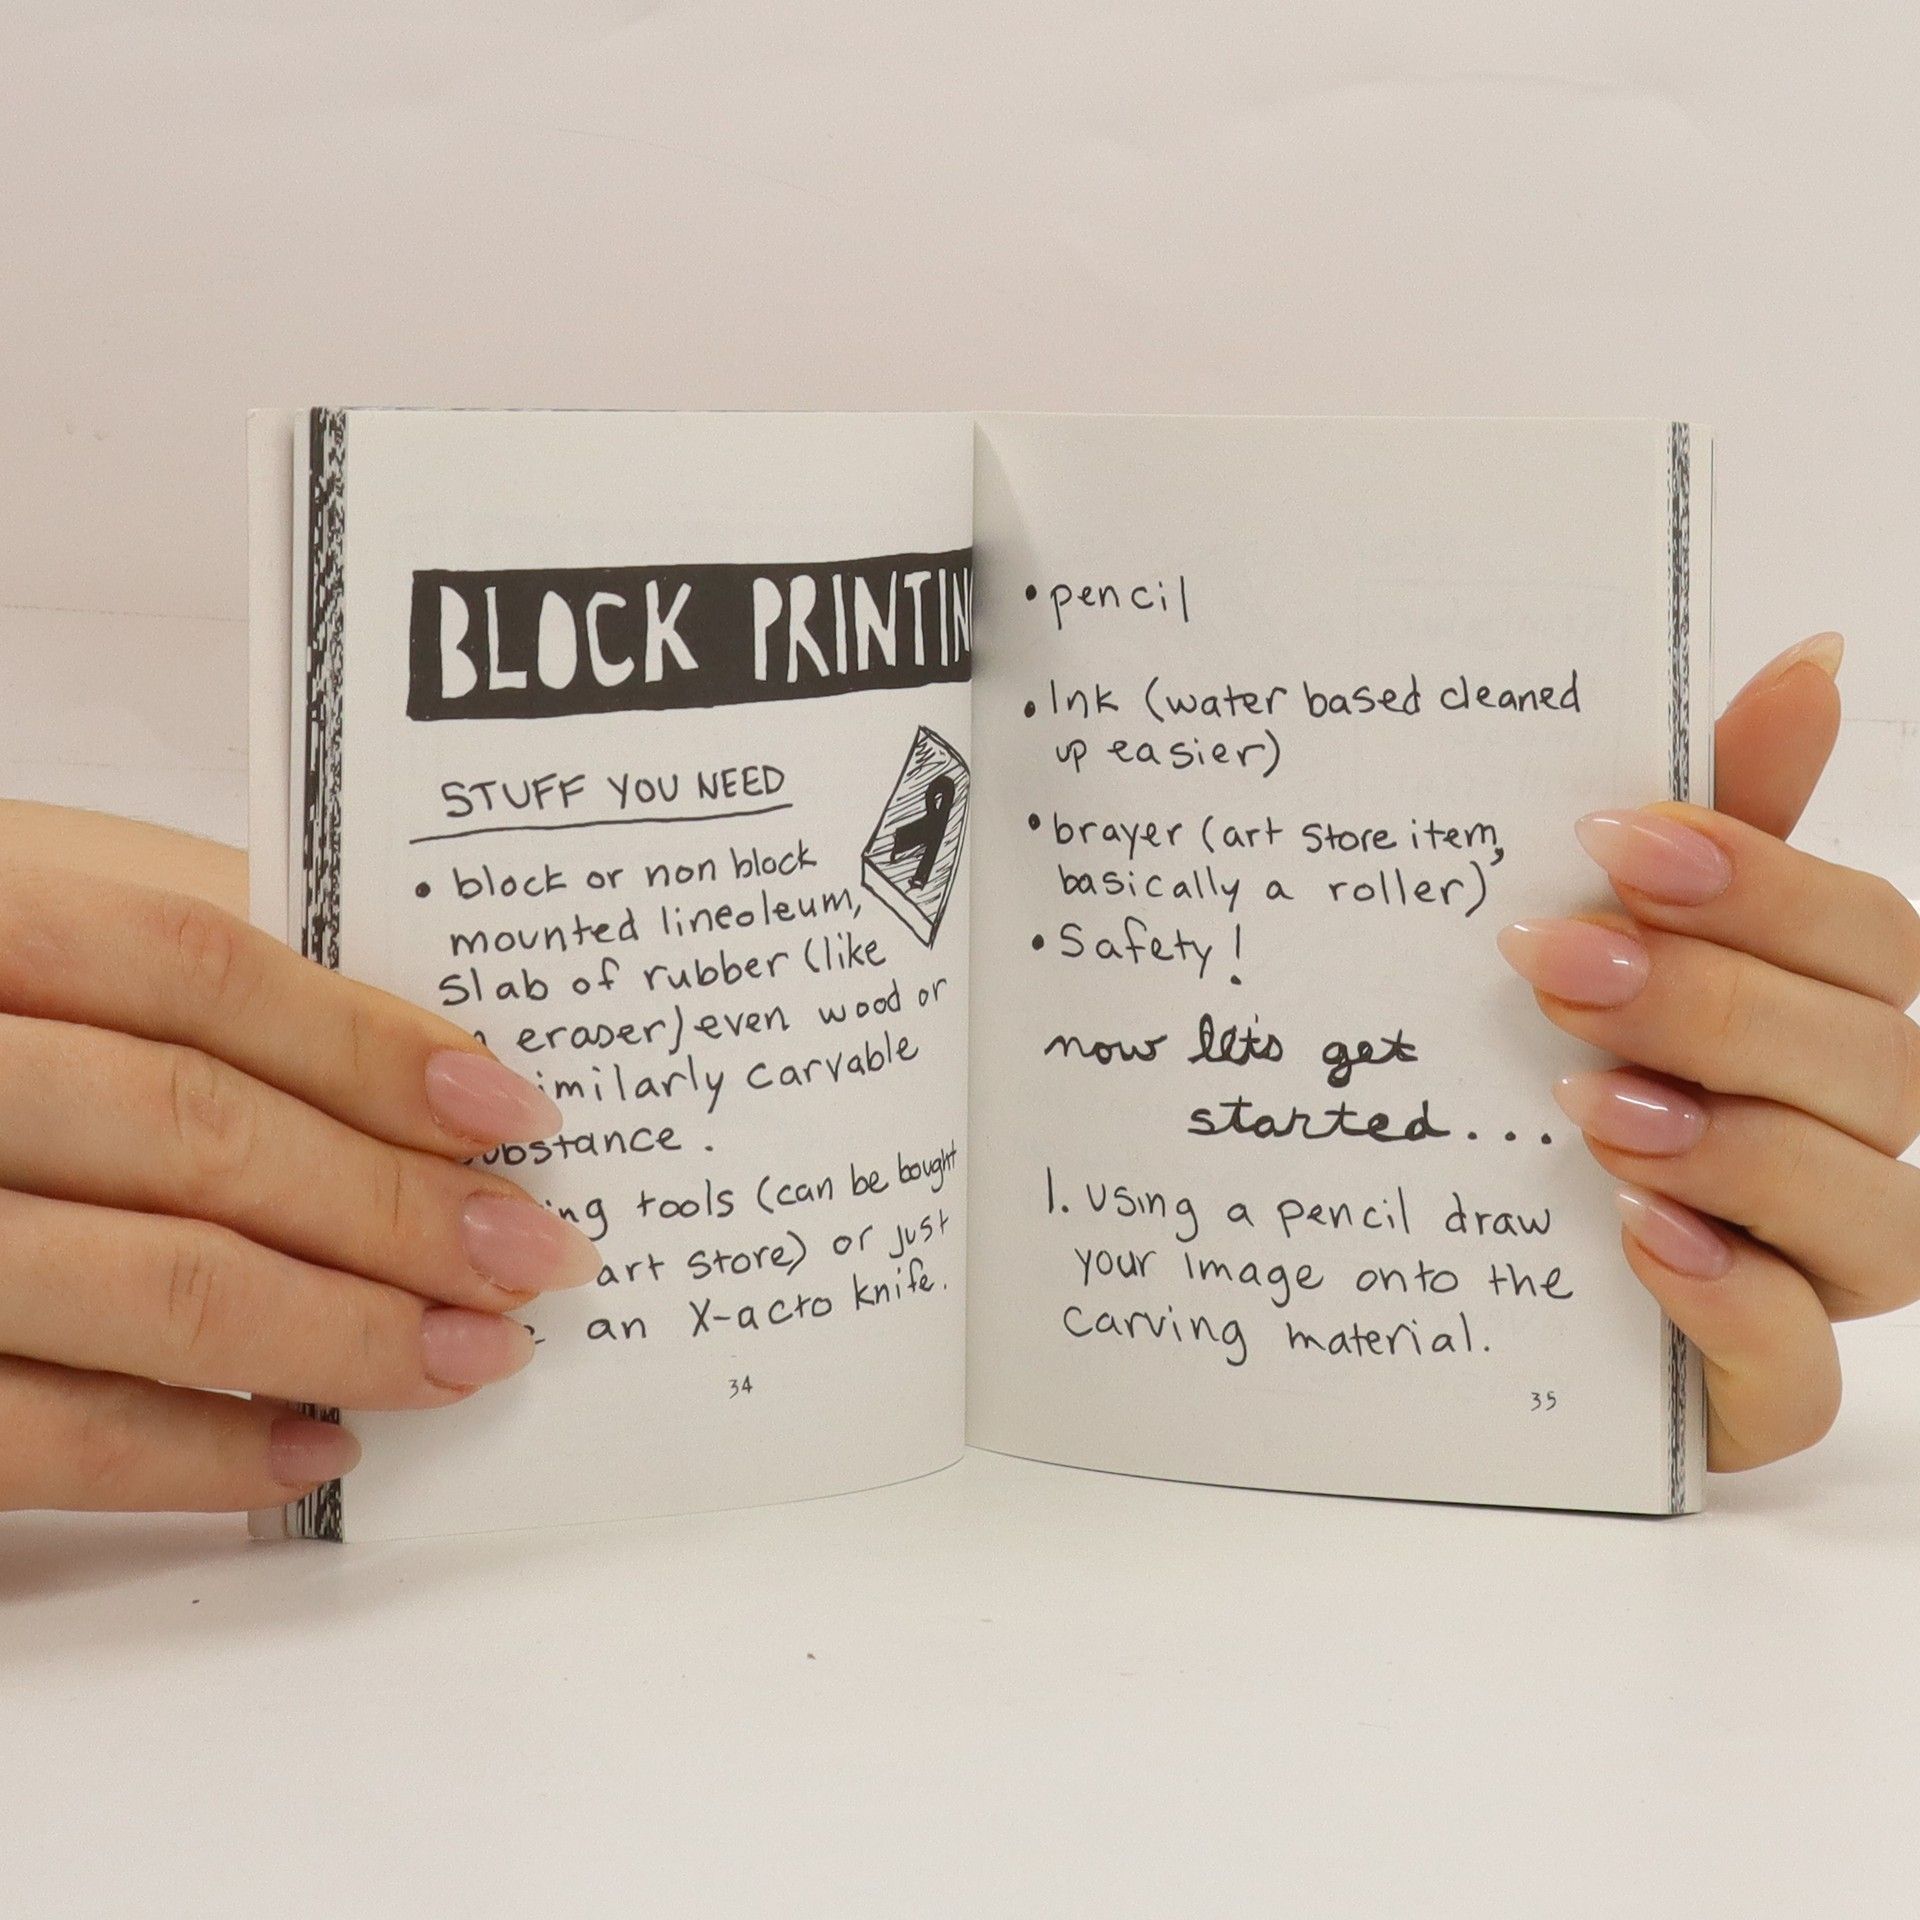 BLOCK PRINTIN
STUFF YOU NEED
• block or non block
mounted lineoleum,
slab of rubber (like
eraser) even wood or
imilarly carvable
ubstance.
ing tools (can be bought
art store) or just
an X-acto knife.
34
• pencil
• Ink (water based cleaned
up easier)
• brayer (art store item,
basically a roller)
• Safety!
now let's get
started...
1. Using a pencil draw
your image onto the
carving material.
35